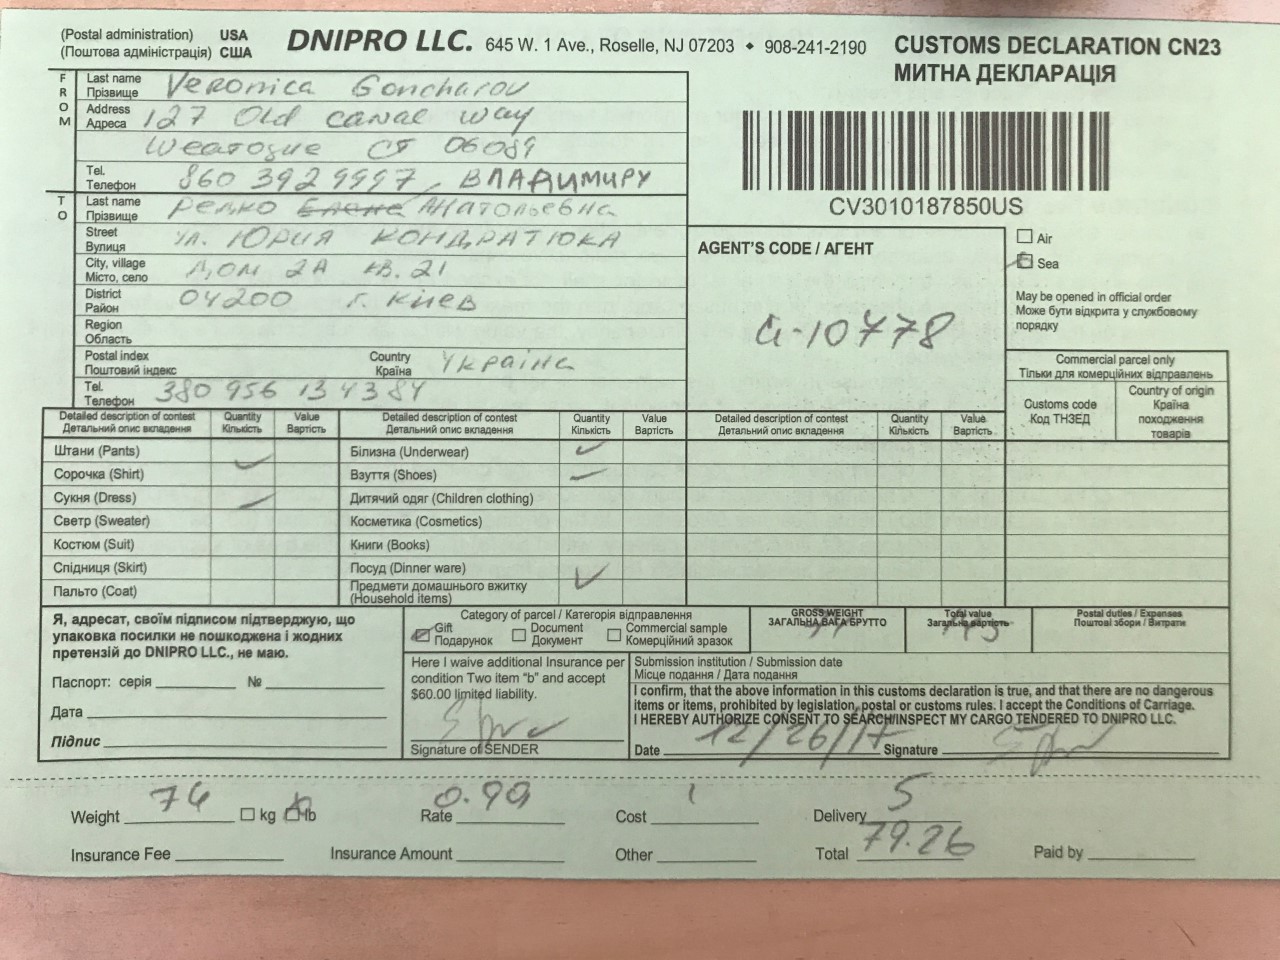 (Postal administration) USA
(Поштова адміністрація) США
DNIPRO LLC. 645 W. 1 Ave., Roselle, NJ 07203 ◆ 908-241-2190
CUSTOMS DECLARATION CN23
МИТНА ДЕКЛАРАЦІЯ
FROM
Last name
Прізвище
Veronica Goncharov
Address
Адреса
127 Old canal way
Weatogue CT 06089
Tel.
Телефон
860 392 9997, ВЛАДИМИРУ
CV3010187850US
TO
Last name
Прізвище
Редко Елене Анатольевна
Street
Вулиця
ул. ЮРИЯ КОНДРАТЮКА
City, village
Місто, село
дом 2А кв. 21
District
Район
04200 г. Киев
Region
Область
Postal index
Поштовий індекс
Country
Країна
Україна
Tel.
Телефон
380 956 134384
AGENT'S CODE / АГЕНТ
G-10778
Air
Sea
May be opened in official order
Може бути відкрита у службовому
порядку
Commercial parcel only
Тільки для комерційних відправлень
Customs code
Код ТНЗЕД
Country of origin
Країна
походження
товарів
Detailed description of contest Quantity Value Detailed description of contest Quantity Value Detailed description of contest Quantity Value
Детальний опис вкладення Кількість Вартість Детальний опис вкладення Кількість Вартість Детальний опис вкладення Кількість Вартість
Штани (Pants) Білизна (Underwear)
Сорочка (Shirt) Взуття (Shoes)
Сукня (Dress) Дитячий одяг (Children clothing)
Светр (Sweater) Косметика (Cosmetics)
Костюм (Suit) Книги (Books)
Спідниця (Skirt) Посуд (Dinner ware)
Пальто (Coat) Предмети домашнього вжитку
(Household items)
Я, адресат, своїм підписом підтверджую, що
упаковка посилки не пошкоджена і жодних
претензій до DNIPRO LLC., не маю.
Паспорт: серія №
Дата
Підпис
Category of parcel / Категорія відправлення
Gift
Подарунок
Document
Документ
Commercial sample
Комерційний зразок
GROSS WEIGHT
ЗАГАЛЬНА ВАГА БРУТТО
Total value
Загальна вартість
Postal duties / Expenses
Поштові збори / Витрати
Here I waive additional Insurance per
condition Two item "b" and accept
$60.00 limited liability.
Signature of SENDER
Submission institution / Submission date
Місце подання / Дата подання
I confirm, that the above information in this customs declaration is true, and that there are no dangerous
items or items, prohibited by legislation, postal or customs rules. I accept the Conditions of Carriage.
I HEREBY AUTHORIZE CONSENT TO SEARCH/INSPECT MY CARGO TENDERED TO DNIPRO LLC.
Date 12/26/17 Signature
Weight 74 kg lb Rate 0.99 Cost Delivery 5
Insurance Fee Insurance Amount Other Total 79.26 Paid by